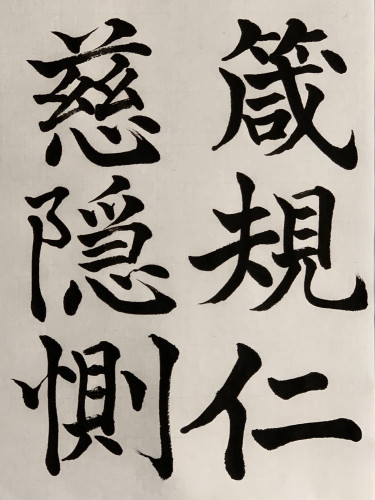 箴規仁
慈隠惻